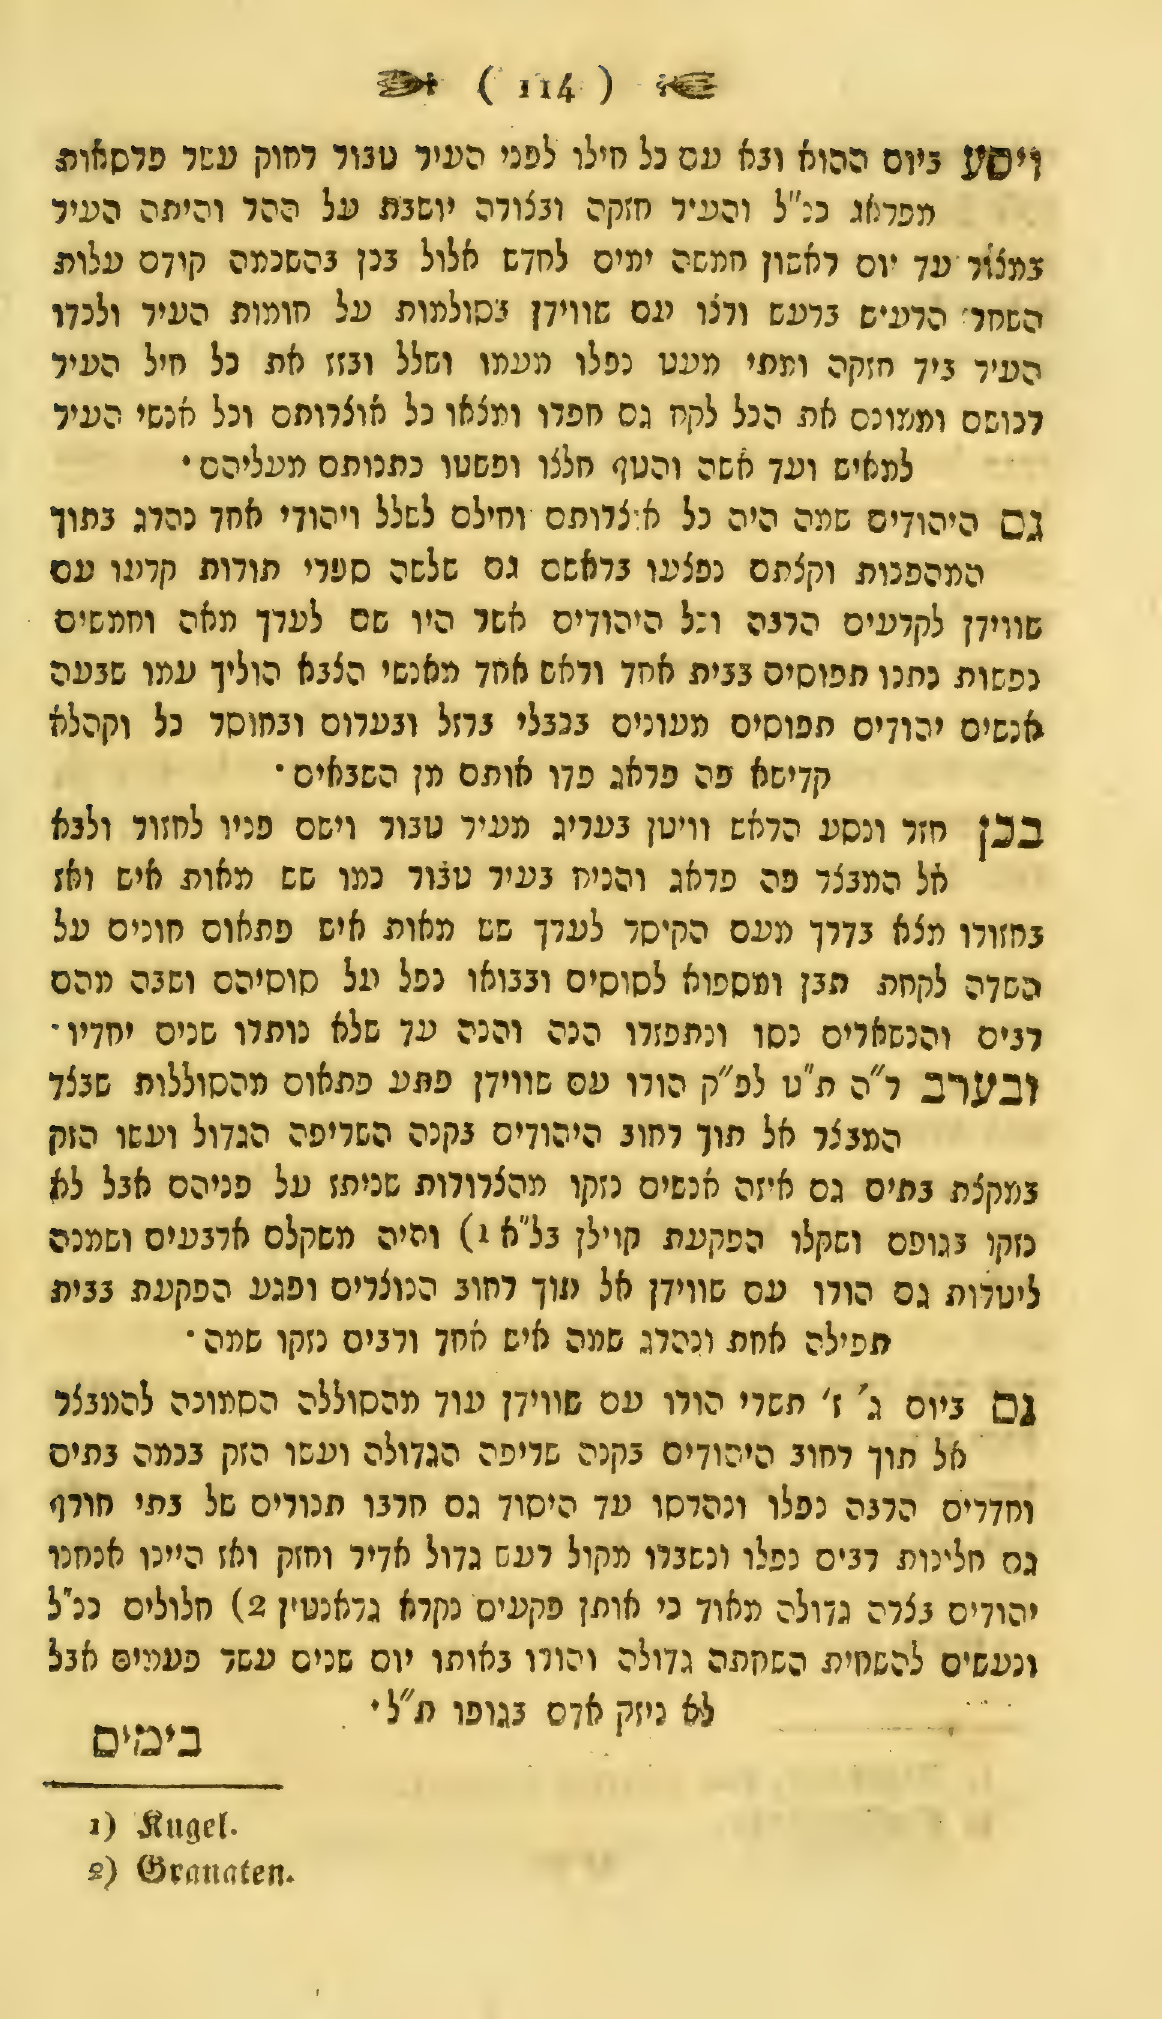 ( 114 )
ויסע ביום ההוא ובא עם כל חילו לפני העיר טבור רחוק עשר פרסאות
מפראג כנ"ל והעיר חזקה ובצורה יושבת על ההר והיתה העיר
במצור עד יום ראשון חמשה ימים לחדש אלול בכן בהשכמה קודם עלות
השחר הרעיש ברעש ורצו עם שווידן בסולמות על חומות העיר ולכדו
העיר ביד חזקה ומתי מעט נפלו מעמו ושלל ובזז את כל חיל העיר
רכושם וממונם את הכל לקח גם חפרו ומצאו כל אוצרותם וכל אנשי העיר
למאיש ועד אשה והטף חללו ופשטו כתנותם מעליהם·
גם היהודים שמה היה כל אוצרותם וחילם לשלל ויהודי אחד נהרג בתוך
המהפכות וקצתם נפצעו בראשם גם שלשה ספרי תורות קרעו עם
שווידן לקרעים הרבה וכל היהודים אשר היו שם לערך מאה וחמשים
נפשות נתנו תפוסים בבית אחד וראש אחד מאנשי הצבא הוליך עמו שבעה
אנשים יהודים תפוסים מעונים בכבלי ברזל ובערום ובחוסר כל וקהלא
קדישא פה פראג פדו אותם מן השבאים·
בכן חזר ונסע הראש וויטן בעריג מעיר טבור וישם פניו לחזור ולבא
אל המבצר פה פראג והניח בעיר טבור כמו שש מאות איש ואז
בחזורו מצא בדרך מעם הקיסר לערך שש מאות איש פתאום חונים על
השדה לקחת תבן ומספוא לסוסים ובבואו נפל על סוסיהם ושבה מהם
רבים והנשארים נסו ונתפזרו הנה והנה עד שלא נותרו שנים יחדיו·
ובערב ר"ה ת"ט לפ"ק הורו עם שווידן פתע פתאום מהסוללות שבצד
המבצר אל תוך רחוב היהודים בקנה השריפה הגדול ועשו הזק
במקצת בתים גם איזה אנשים נזקו מהצרורות שניתז על פניהם אבל לא
נזקו בגופם ושקלו הפקעת קוילן בל"א 1) והיה משקלם ארבעים ושמנה
ליטרות גם הורו עם שווידן אל תוך רחוב הנוצרים ופגע הפקעת בבית
תפילה אחת ונהרג שמה איש אחד ורבים נזקו שמה·
גם ביום ג' ז' תשרי הורו עם שווידן עוד מהסוללה הסמוכה להמבצר
אל תוך רחוב היהודים בקנה שריפה הגדולה ועשו הזק בכמה בתים
וחדרים הרבה נפלו ונהרסו עד היסוד גם חרבו תנורים של בתי חורף
גם חלינות רבים נפלו ונשברו מקול רעש גדול אדיר וחזק ואז היינו אנחנו
יהודים בצרה גדולה מאוד כי אותן פקעים נקרא גראנטין 2) חלולים כנ"ל
ונעשים להשחית השחתה גדולה והורו באותו יום שנים עשר פעמים אבל
לא ניזק אדם בגופו ת"ל·
בימים
1) Kugel.
2) Granaten.